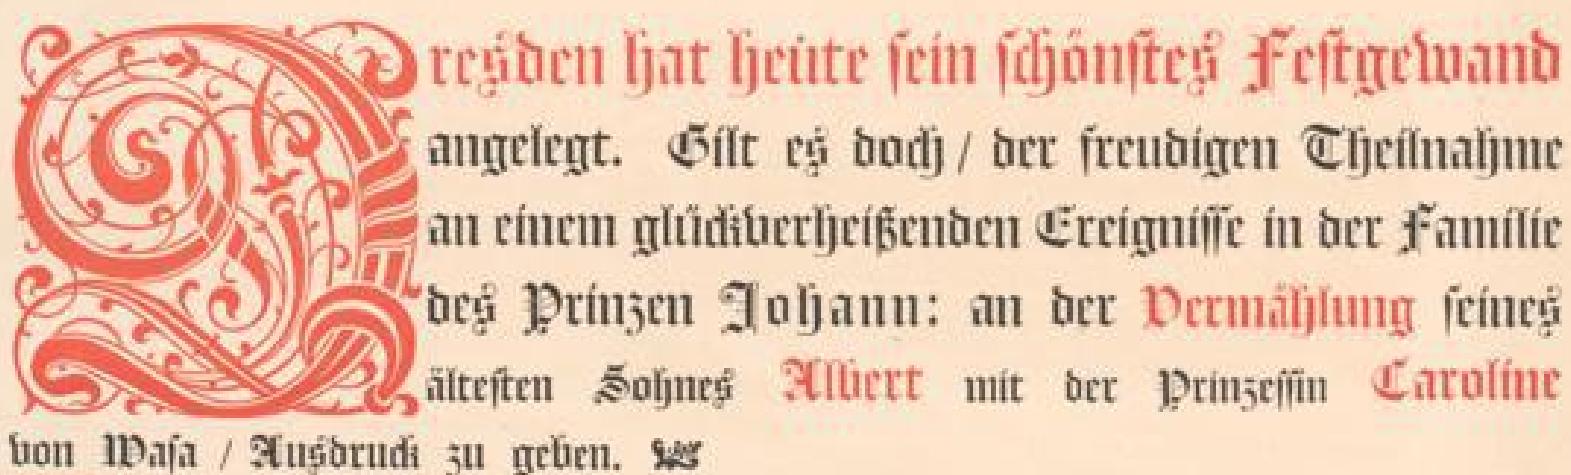 Dresden hat heute sein schönstes Festgewand
angelegt. Gilt es doch / der freudigen Theilnahme
an einem glückverheißenden Ereignisse in der Familie
des Prinzen Johann: an der Vermählung seines
ältesten Sohnes Albert mit der Prinzessin Caroline
von Wasa / Ausdruck zu geben.